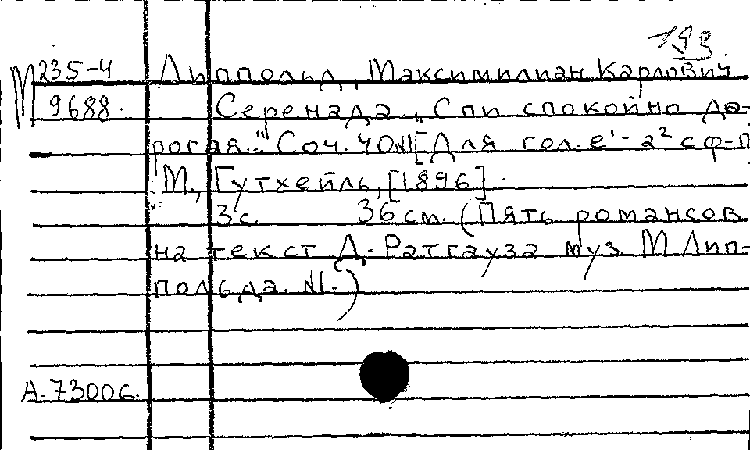 193
М 235-4 Липпольд, Максимилиан Карлович
9688. Серенада "Спи спокойно до-
рогая." Соч. 40 N1 [Для гол. e'-a² с ф-п
М., Гутхейль, [1896].
3с. 36 см. (Пять романсов
на текст Д. Ратгауза муз М Лип-
польда. N1.)
А. 73006.